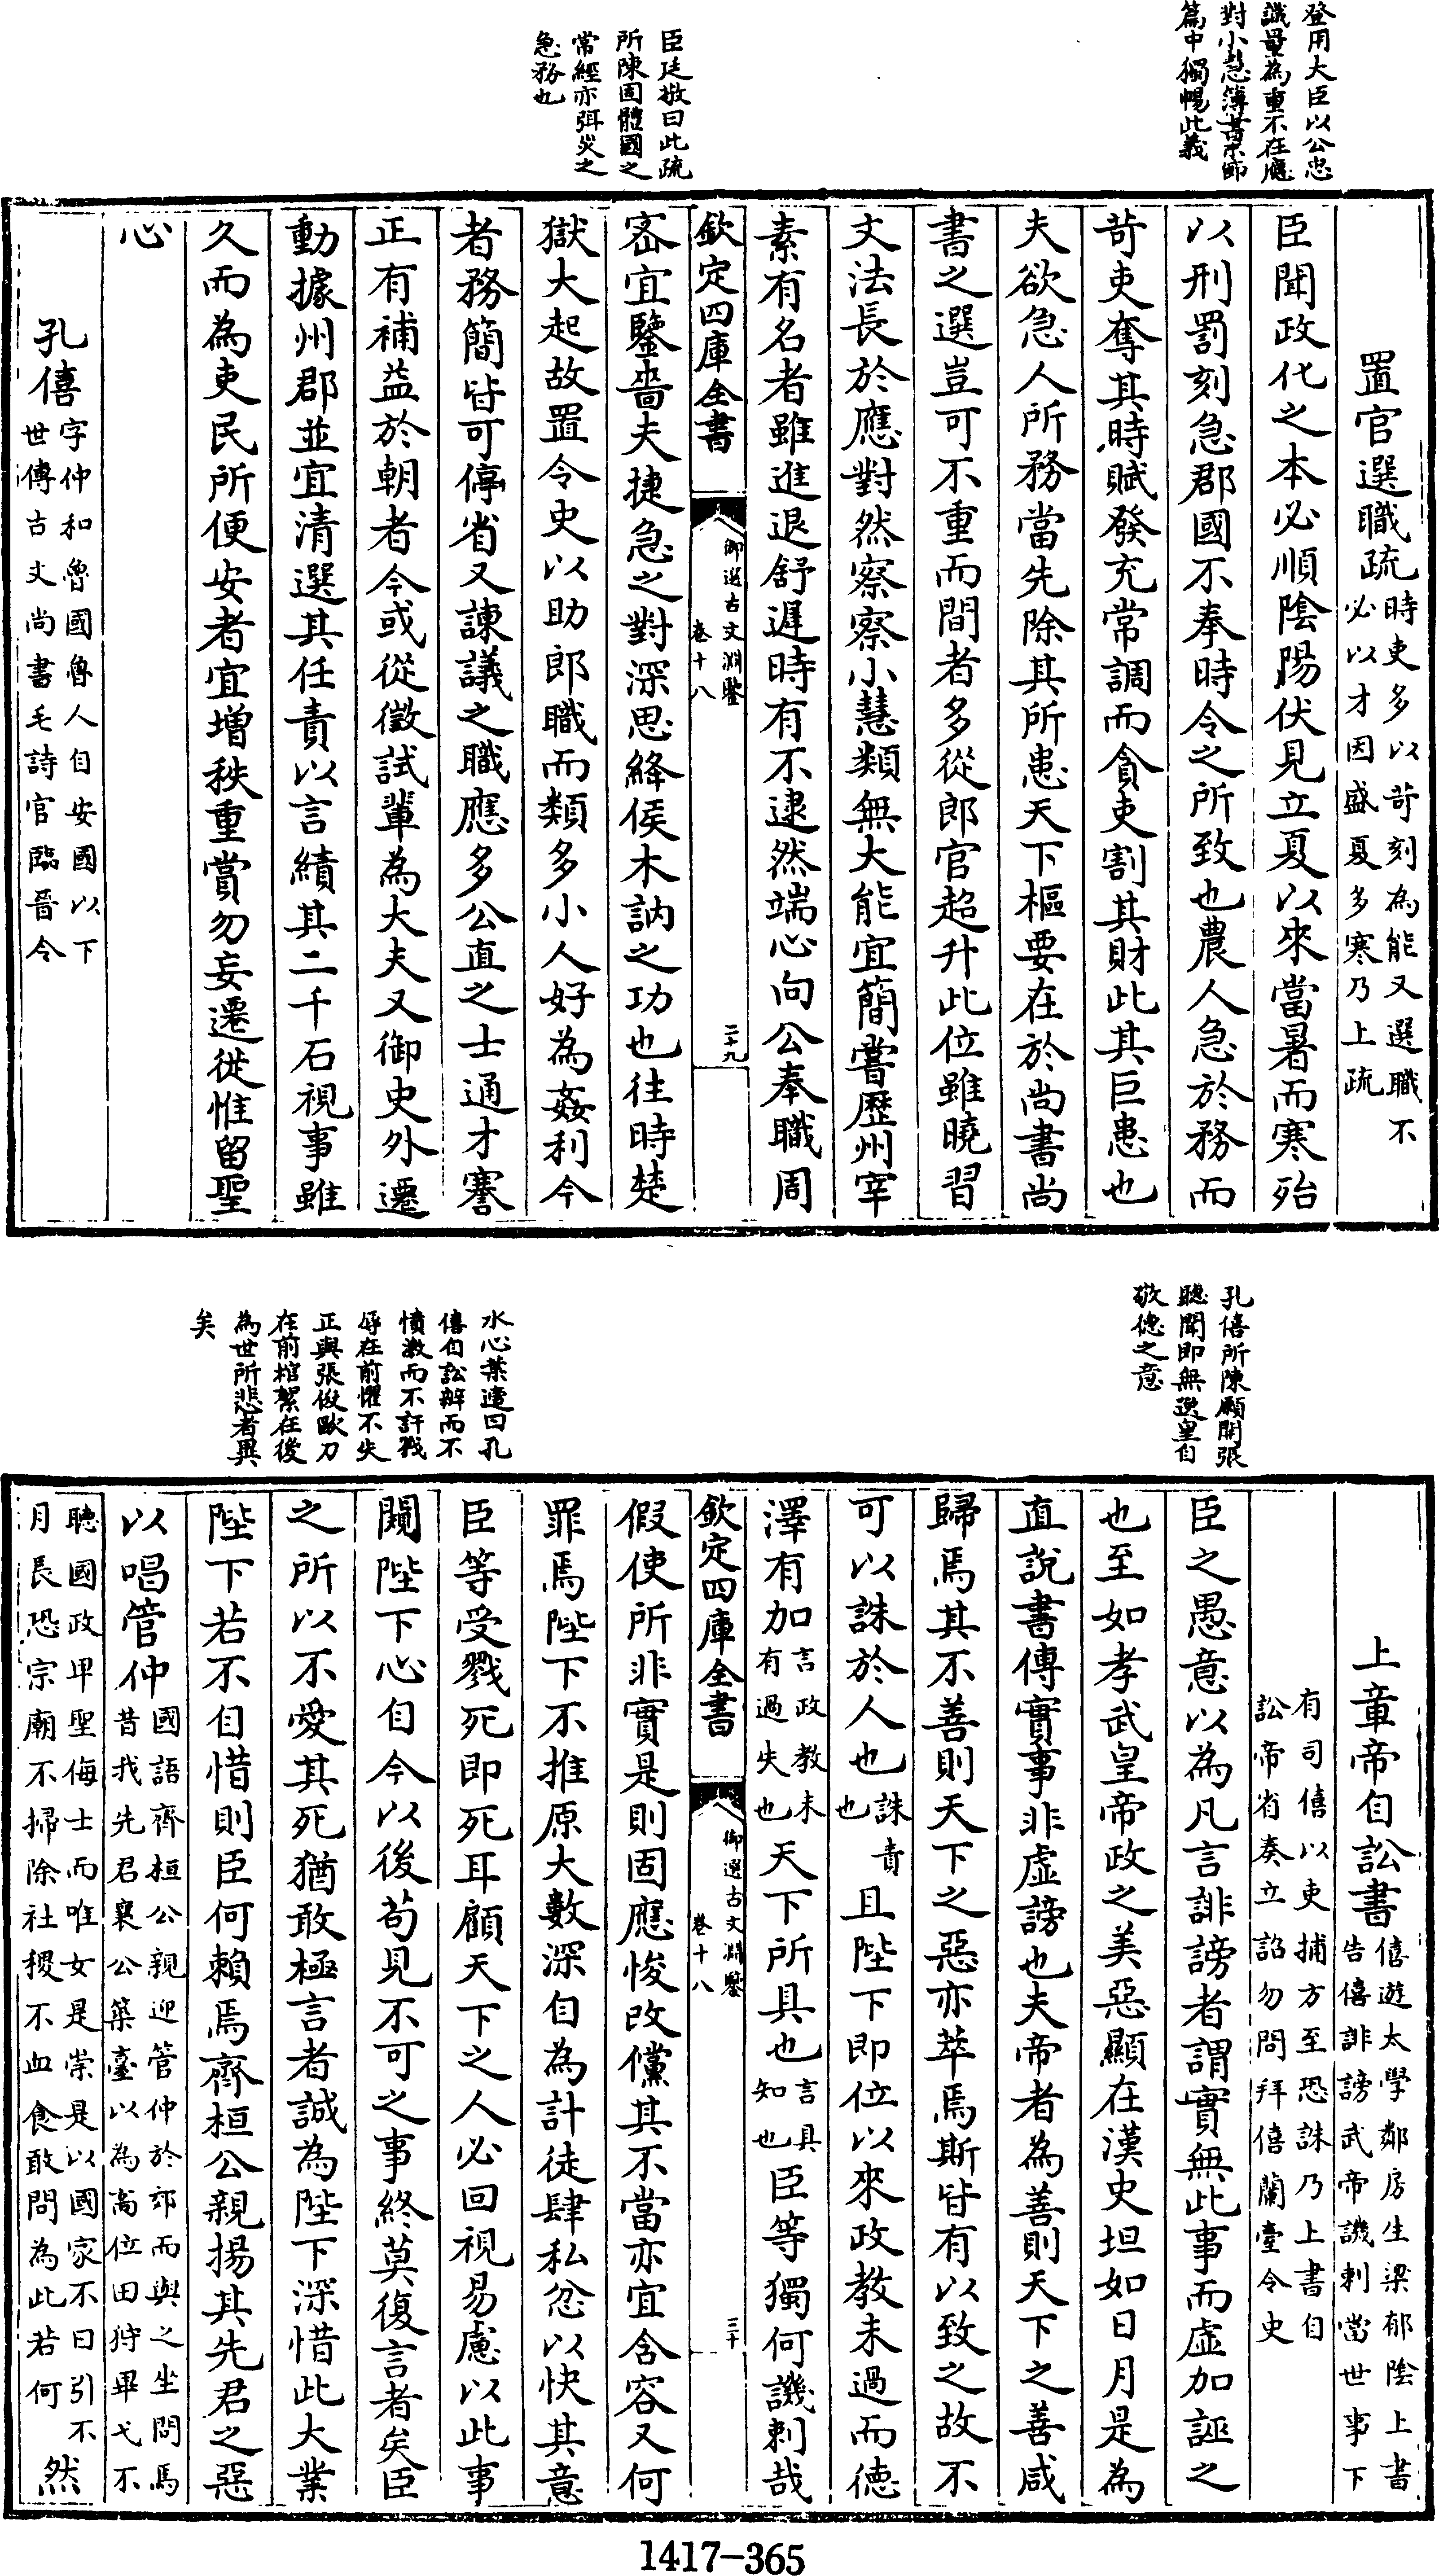 登用大臣以公忠
識量為重不在應
對小慧簿書末節
篇中獨暢此義
臣廷敬曰此疏
所陳固體國之
常經亦弭災之
急務也
置官選職疏時吏多以苛刻為能又選職不
必以才因盛夏多寒乃上疏
臣聞政化之本必順陰陽伏見立夏以來當暑而寒殆
以刑罰刻急郡國不奉時令之所致也農人急於務而
苛吏奪其時賦發充常調而貪吏割其財此其巨患也
夫欲急人所務當先除其所患天下樞要在於尚書尚
書之選豈可不重而間者多從郎官超升此位雖曉習
文法長於應對然察察小慧類無大能宜簡嘗歷州宰
素有名者雖進退舒遲時有不逮然端心向公奉職周
欽定四庫全書
御選古文淵鑒
卷十八
二十九
宻宜鑒嗇夫捷急之對深思絳侯木訥之功也往時楚
獄大起故置令史以助郎職而類多小人好為姦利今
者務簡皆可停省又諫議之職應多公直之士通才謇
正有補益於朝者今或從徵試輩為大夫又御史外遷
動據州郡並宜清選其任責以言績其二千石視事雖
久而為吏民所便安者宜增秩重賞勿妄遷徙惟留聖
心
孔僖字仲和魯國魯人自安國以下
世傳古文尚書毛詩官臨晉令
孔僖所陳願開張
聽聞即無逸皇自
敬德之意
水心葉適曰孔
僖自訟辯而不
憤激而不訐戮
辱在前懼不失
正與張儉歐刀
在前棺絮在後
為世所悲者異
矣
上章帝自訟書僖遊太學鄰房生梁郁陰上書
告僖誹謗武帝譏刺當世事下
有司僖以吏捕方至恐誅乃上書自
訟帝省奏立詔勿問拜僖蘭臺令史
臣之愚意以為凡言誹謗者謂實無此事而虛加誣之
也至如孝武皇帝政之美惡顯在漢史坦如日月是為
直說書傳實事非虛謗也夫帝者為善則天下之善咸
歸焉其不善則天下之惡亦萃焉斯皆有以致之故不
可以誅於人也誅責
也且陛下即位以來政教未過而德
澤有加言政教未
有過失也天下所具也言具
知也臣等獨何譏刺哉
欽定四庫全書
御選古文淵鑒
卷十八
三十
假使所非實是則固應悛改儻其不當亦宜含容又何
罪焉陛下不推原大數深自為計徒肆私忿以快其意
臣等受戮死即死耳顧天下之人必回視易慮以此事
闚陛下心自今以後茍見不可之事終莫復言者矣臣
之所以不愛其死猶敢極言者誠為陛下深惜此大業
陛下若不自惜則臣何賴焉齊桓公親揚其先君之惡
以唱管仲國語齊桓公親迎管仲於郊而與之坐問焉
昔我先君襄公築臺以為高位田狩畢弋不
聽國政卑聖侮士而唯女是崇是以國家不日引不
月長恐宗廟不掃除社稷不血食敢問為此若何然
1417-365